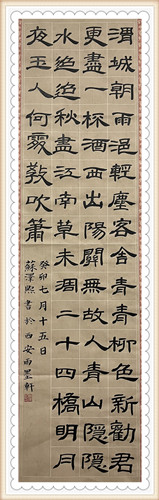 渭城朝雨浥輕塵客舍青青柳色新勸君
更盡一杯酒西出陽關無故人青山隱隱
水迢迢秋盡江南草未凋二十四橋明月
夜玉人何處教吹簫
癸卯七月十五日
蘇澤熙書於西安雨墨軒